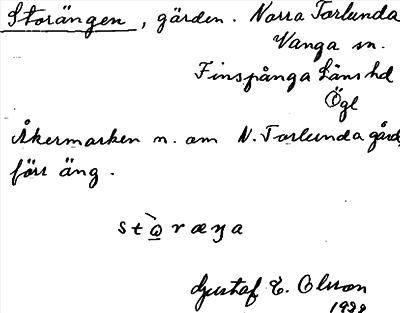 Storängen, gärden. Norra Torlunda
Vånga sn.
Finspånga läns hd
Ögl
Åkermarken n. om N. Torlunda gård,
förr äng.
stọ̀ræŋa
Gustaf E. Olsson